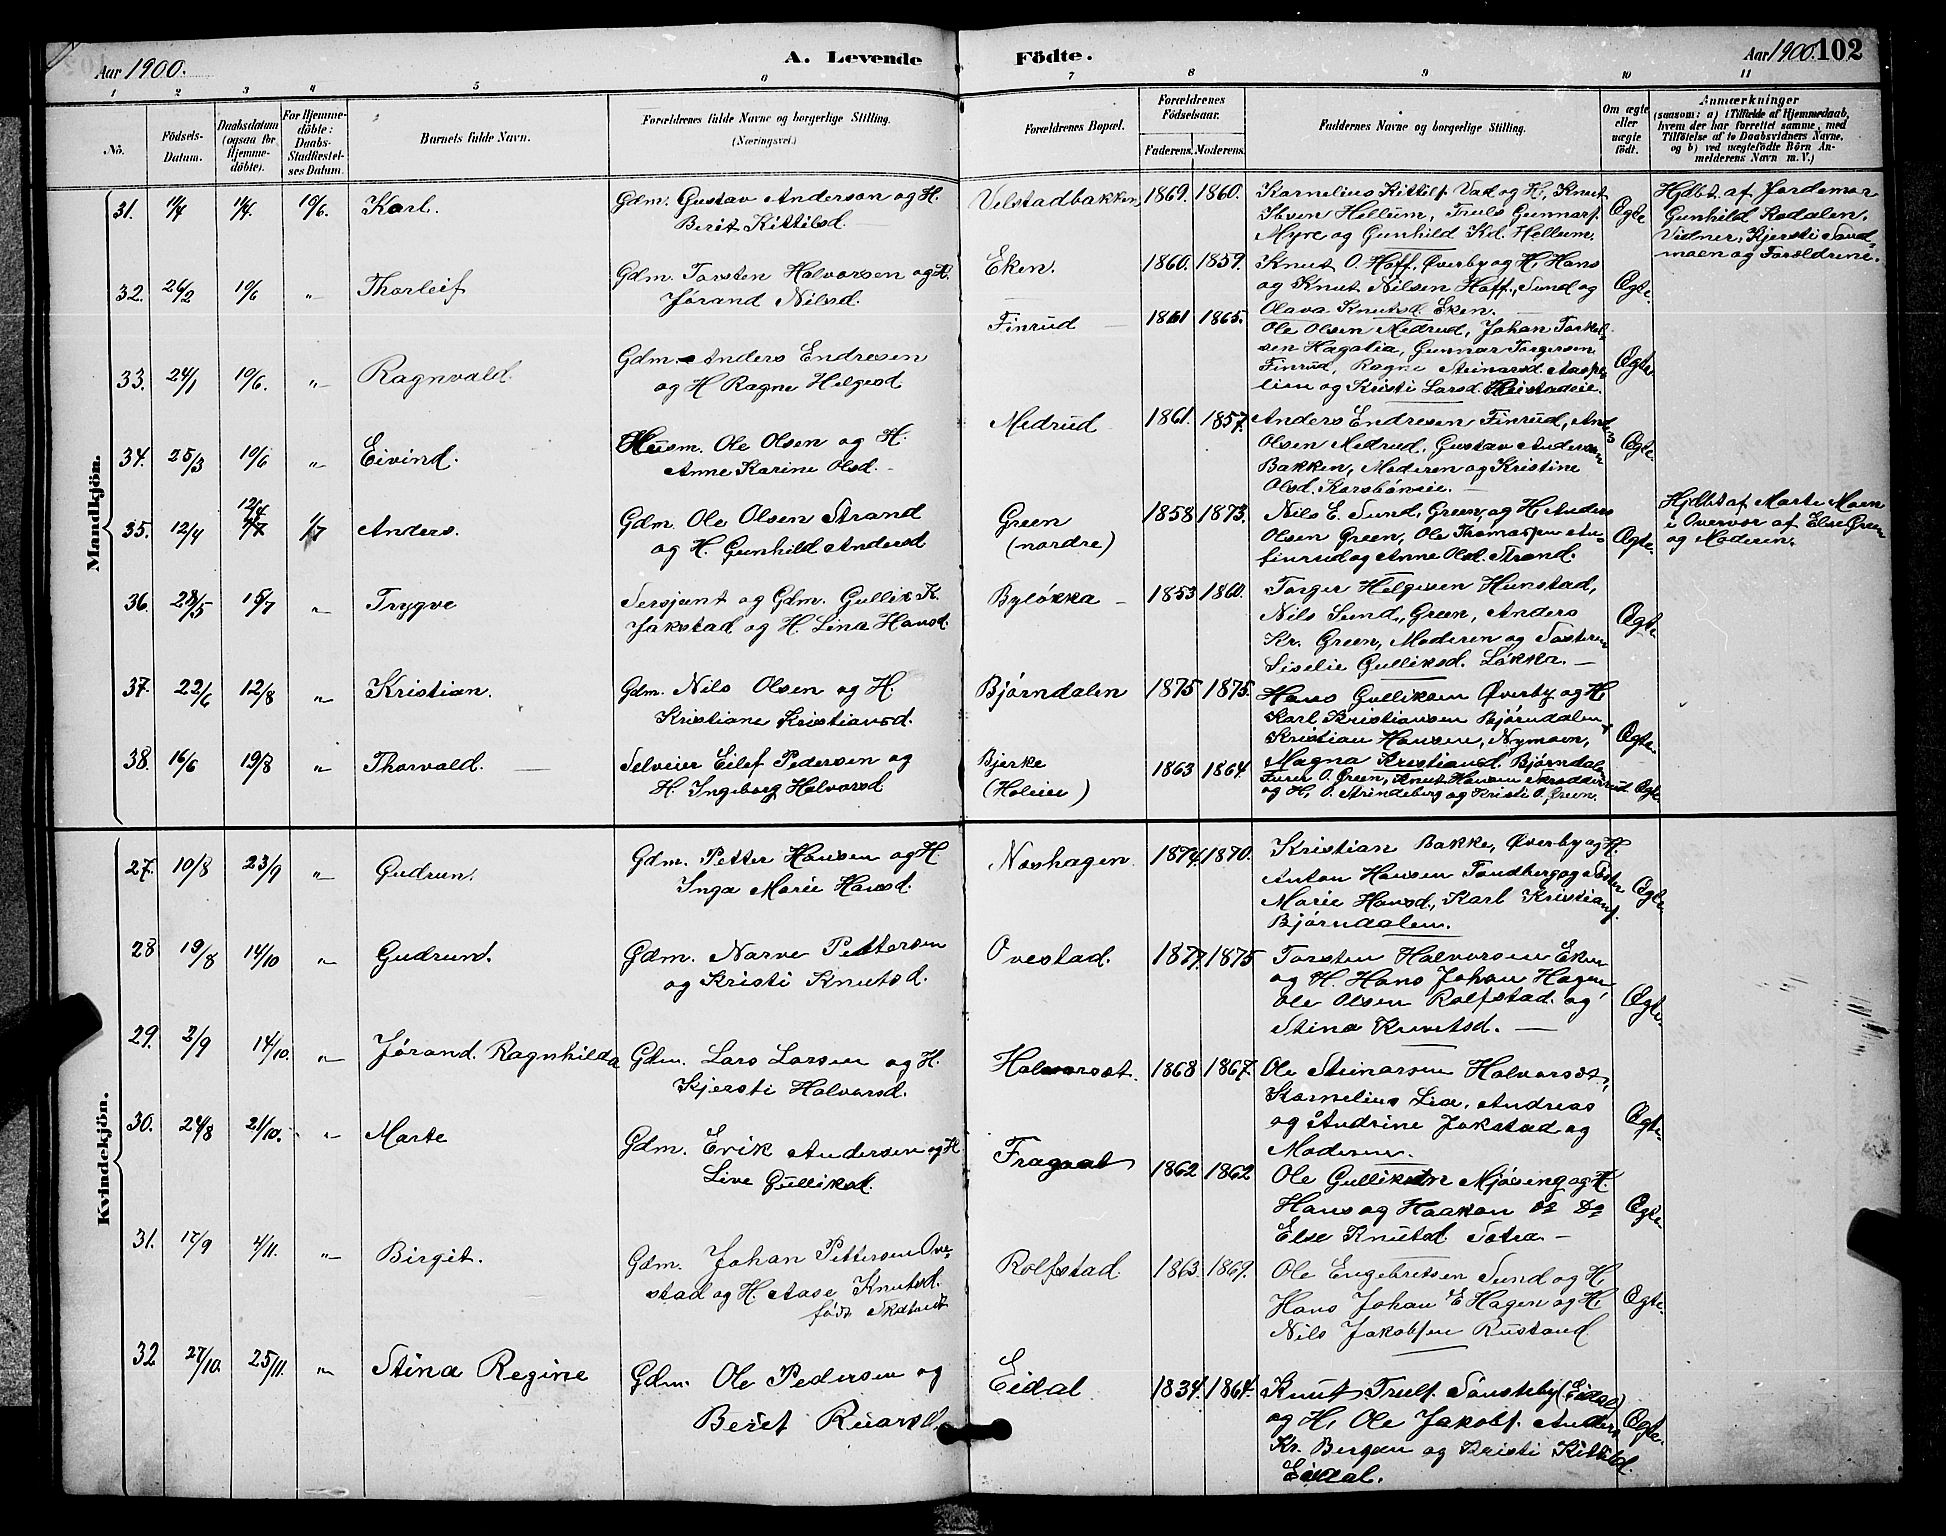 Aar 1900. A. Levende Födte. Aar 1900. 102
1 2 3 4 5 6 7 8 9 10 11
No.
Födsels-
Datum.
Daabsdatum
(ogsaa for
Hjemme-
döbte).
For Hjemme-
döbte:
Daabs-
Stadfæstel-
ses Datum.
Barnets fulde Navn.
Forældrenes fulde Navne og borgerlige Stilling.
(Næringsvei.)
Forældrenes Bopæl.
Forældrenes
Födselsaar.
Faderens. Moderens.
Faddernes Navne og borgerlige Stilling.
Om ægte
eller
uægte
födt.
Anmærkninger
(saasom: a) i Tilfælde af Hjemmedaab,
hvem der har forrettet samme, med
Tilföielse af to Daabsvidners Navne,
og b) ved uægtefödte Börn An-
melderens Navn m. V.)
Mandkjön.
31. 11/4 11/4. 10/6. Karl.
Gdm. Gustav Anderson og H.
Berit Kittilsd.
Velstadbakken 1869. 1860.
Kornelius Kittilf Vad og H, Knut
Ibsen Hellum, Truls Gunnarf.
Myre og Gunhild Kd. Hellum.
Ægte
Hjdbt af Jordemor
Gunhild Kodalen.
Vidner, Kjersti Sand-
moen og Forældrene.
32. 26/2 10/6 " Thorleif
Gdm. Torsten Halvorsen og H.
Jörand Nilsd.
Eken. 1860. 1859.
Knut O. Hoff, Øverby og H, Hans
og Knut Nilsen Hoff, Sund og
Olava Knutsd. Eken.
Ægte.
33. 24/1 10/6. " Ragnvald.
Gdm. Anders Endresen
og H Ragne Helgesd
Finrud 1861 1865.
Ole Olsen Medrud, Johan Torkel-
sen Hagalia, Gunnar Torgersen
Finrud, Ragne Steinarsd Aaspe-
lien og Kristi Larsd.
Ægte
34. 25/3 10/6 " Eivind.
Husm. Ole Olsen og H.
Anne Karine Olsd.
Medrud 1861. 1857.
Anders Endresen Finrud, Anders
Olsen Medrud, Gustav Andersen
Bakken, Moderen og Kristine
Olsd. Korsböneie.
Ægte.
35. 12/4 12/4 1/7 Anders.
Gdm. Ole Olsen Strand
og H. Gunhild Andersd
Green
(nordre)
1858 1873.
Nils E. Sund, Green, og H, Anders
Olsen Green, Ole Thomassen An-
finrud og Anne Olsd. Strand.
Ægte.
Hjdbt af Marte Moen
i Overvær af Else Green
og Moderen.
36. 28/5 15/7 " Trygve
Sersjant og Gdm. Gullik K.
Jakstad og H. Lina Hansd.
Bylökka 1853 1860.
Torger Helgesen Hunstad,
Nils Sund, Green, Anders
Kr. Green, Moderen og Søsteren
Siselie Gulliksd. Løkka.
Ægte
37. 22/6 12/8 " Kristian.
Gdm. Nils Olsen og H.
Kristiane Kristiansd.
Bjørndalen 1875 1875.
Hans Gulliksen Øverby og H,
Karl Kristiansen Bjørndalen
Kristian Hansen, Nymoen,
Magna Kristiansd. Bjørndalen
Ægte.
38. 16/6 19/8 " Thorvald.
Selveier Eilef Pedersen og
H. Ingeborg Halvorsd
Bjerke
(Holeie)
1863 1864
Furer O. Green, Knut Hansen Skredderrud
og H, O. Strindeberg og Kristi O. Green.
Ægte
Kvindekjön.
27. 10/8 23/9 " Gudrun.
Gdm. Petter Hansen og H.
Inga Marie Hansd.
Noshagen 1874. 1870.
Kristian Bakke, Øverby og H.
Anton Hansen Tandberg og Søster
Marie Hansd., Karl Kristiansf.
Bjørndalen.
Ægte
28 19/8 14/10 " Gudrund.
Gdm. Narve Pettersen
og Kristi Knutsd.
Ovestad. 1877. 1875
Torsten Halvorsen Eken
og H. Hans Johan Hagen,
Ole Olsen Rolfstad. og
Stina Knutsd.
Ægte.
29. 2/9 14/10. " Jørand Ragnhilda
Gdm. Lars Larsen og H.
Kjersti Halvorsd.
Halvorset. 1868 1867.
Ole Steinarsen Halvorset,
Kornelius Lia, Andreas
og Andrine Jakstad og
Moderen.
Ægte
30. 24/8 21/10. " Marte
Gdm. Erik Andersen og H
Live Gulliksd.
1862 1862
Ole Gulliksen Mjøseng og H.
Hans og Haakon Do Do
Else Knutsd Sotra
Ægte.
31. 17/9 4/11. " Birgit.
Gdm. Johan Pettersen Ove-
stad og H. Aase Knutsd.
født
Rolfstad. 1863 1869.
Ole Engebretsen Sund og H,
Hans Johan E Hagen og H,
Nils Jakobsen Rustand
Ægte.
32 27/10. 25/11. " Stina Regine
Gdm. Ole Pedersen og
Beret Ruarsd.
Eidal 1834. 1864.
Knut Trulf. Sønsteby (Eidal)
og H, Ole Jakobf. Anders
Kr. Bergan og Kristi Kittilsd.
Eidal.
Ægte.